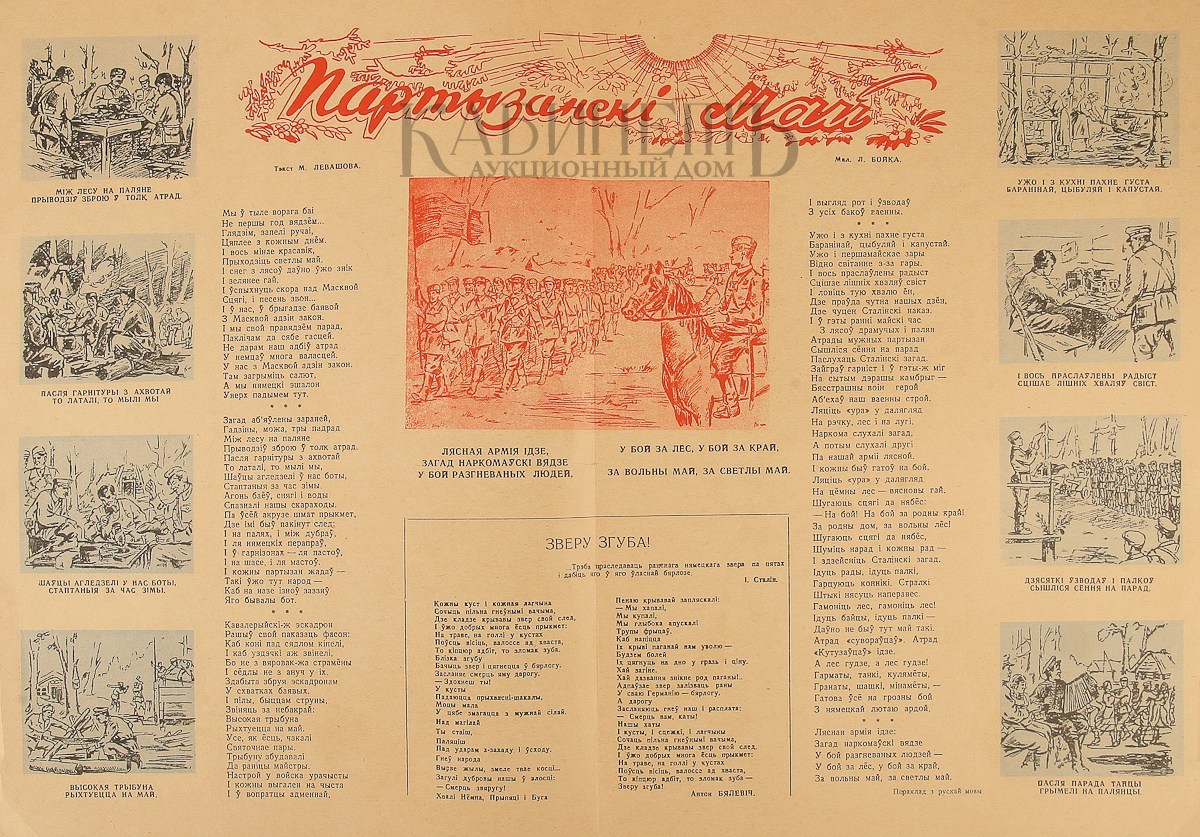 Партызанскі Май
КАБИНЕТЪ
АУКЦИОННЫЙ ДОМ
Тэкст М. ЛЕВАШОВА.
Мал. Л. БОЙКА.
МІЖ ЛЕСУ НА ПАЛЯНЕ
ПРЫВОДЗІЎ ЗБРОЮ Ў ТОЛК АТРАД.
ПАСЛЯ ГАРНІТУРЫ З АХВОТАЙ
ТО ЛАТАЛІ, ТО МЫЛІ МЫ
ШАЎЦЫ АГЛЕДЗЕЛІ У НАС БОТЫ,
СТАПТАНЫЯ ЗА ЧАС ЗІМЫ.
ВЫСОКАЯ ТРЫБУНА
РЫХТУЕЦЦА НА МАЙ.
Мы ў тыле ворага баі
Не першы год вядзём...
Глядзім, запелі ручаі,
Цяплее з кожным днём.
І вось мінае красавік,
Прыходзіць светлы май.
І снег з лясоў даўно ўжо знік
І зелянее гай.
І ўспыхнуць скора над Масквой
Сцягі, і песень звон...
І ў нас, ў брыгадзе баявой
З Масквой адзін закон.
І мы свой правядзём парад,
Паклічам да сябе гасцей.
Не дарам наш адбіў атрад
У немцаў многа валасцей.
У нас з Масквой адзін закон.
Там загрыміць салют,
А мы нямецкі эшалон
Уверх падымем тут.
* * *
Загад аб'яўлены зараней,
Гадзіны, можа, тры падрад
Між лесу на паляне
Прыводзіў зброю ў толк атрад.
Пасля гарнітуры з ахвотай
То латалі, то мылі мы,
Шаўцы агледзелі ў нас боты,
Стаптаныя за час зімы.
Агонь баёў, снягі і воды
Спазналі нашы скараходы.
Па ўсёй акрузе шмат прыкмет,
Дзе імі быў пакінут след;
І на палях, і між дубраў,
І ля нямецкіх перапраў,
І ў гарнізонах — ля пастоў,
І на шасе, і ля мастоў.
І кожны партызан жадаў —
Такі ўжо тут народ —
Каб на назе ізноў ззазяў
Яго бывалы бот.
* * *
Кавалерыйскі-ж эскадрон
Рашыў свой паказаць фасон:
Каб коні пад сядлом кіпелі,
І каб уздэчкі аж звінелі,
Бо не з вяровак-жа страмёны
І сёдлы не з ануч у іх.
Здабыта збруя эскадронам
У схватках баявых,
І пілы, быццам струны,
Звіняць за небакрай:
Высокая трыбуна
Рыхтуецца на май.
Усе, як ёсць, чакалі
Святочнае пары.
Трыбуну збудавалі
Да раніцы майстры.
Настрой у войска урачысты
І кожны выгален на чыста
І ў вопратцы адменнай,
ЛЯСНАЯ АРМІЯ ІДЗЕ,
ЗАГАД НАРКОМАЎСКІ ВЯДЗЕ
У БОЙ РАЗГНЕВАНЫХ ЛЮДЕЙ,
У БОЙ ЗА ЛЕС, У БОЙ ЗА КРАЙ,
ЗА ВОЛЬНЫ МАЙ, ЗА СВЕТЛЫ МАЙ.
ЗВЕРУ ЗГУБА!
Трэба праследаваць раненага нямецкага звера па пятах
і дабіць яго ў яго ўласнай бярлозе.
І. Сталін.
Кожны куст і кожная лагчына
Сочыць пільна гнеўнымі вачыма,
Дзе кладзе крывавы звер свой след,
І ўжо добрых многа ёсць прыкмет:
На траве, на голлі у кустах
Поўсць вісіць, валоссе ад хваста,
То кіпцюр адбіт, то зломак зуба.
Блізка згубу
Бачыць звер і цягнецца ў бярлогу.
Засланяе смерць яму дарогу.
— Здохнеш ты!
У кусты
Падаюцца прыхвасні-шакалы,
Моцы мала
У цябе змагацца з мужнай сілай.
Над магілай
Ты стаіш,
Паляціш
Пад ударам з-захаду і ўсходу.
Гнеў народа
Вырве жылы, змеле твае косці...
Загулі дубровы нашы ў злосці:
— Смерць звяругу!
Хвалі Нёмна, Прыпяці і Буга
Пенаю крывавай запляскалі:
— Мы хапалі,
Мы купалі,
Мы глыбока апускалі
Трупы фрыцаў.
Каб напіцца
Іх крыві паганай нам уволю —
Будзем болей
Іх цягнуць на дно у гразь і ціну.
Хай загіне,
Хай дазвання знікне род паганы!..
Аднаўзае звер залізваць раны
У сваю Германію — бярлогу.
А дарогу
Засланяюць гнеў наш і расплата:
— Смерць вам, каты!
Нашы хаты
І кусты, і сцежкі, і лагчыны
Сочаць пільна гнеўнымі вачыма,
Дзе кладзе крывавы звер свой след.
І ўжо добрых многа ёсць прыкмет:
На траве, на голлі у кустах
Поўсць вісіць, валоссе ад хваста,
То кіпцюр адбіт, то зломак зуба —
Зверу згуба!
Антон БЯЛЕВІЧ.
І выгляд рот і ўзводаў
З усіх бакоў ваенны.
* * *
Ужо і з кухні пахне густа
Баранінай, цыбуляй і капустай.
Ужо і першамайскае зары
Відно світанне з-за гары.
І вось праслаўлены радыст
Сцішае лішніх хваляў свіст
І ловіць тую хвалю ён,
Дзе праўда чутна нашых дзён,
Дзе чуцен Сталінскі наказ.
І ў гэты ранні майскі час
З лясоў драмучых і палян
Атрады мужных партызан
Сышліся сёння на парад
Паслухаць Сталінскі загад.
Зайграў гарніст і ў гэты-ж міг
На сытым дэрашы камбрыг —
Бясстрашны воін герой
Аб'ехаў наш ваенны строй.
Ляціць «ура» у далягляд
На рэчку, лес і на лугі,
Наркома слухалі загад,
А потым слухалі другі
Па нашай арміі лясной.
І кожны быў гатоў на бой.
Ляціць «ура» у далягляд
На цёмны лес — вясновы гай.
Шугаюць сцягі да нябёс:
— На бой! На бой за родны край!
За родны дом, за вольны лёс!
Шугаюць сцягі да нябёс,
Шуміць нарад і кожны рад —
І здзейсніць Сталінскі загад.
Ідуць рады, ідуць палкі,
Гарцуюць коннікі. Стралкі
Штыкі нясуць наперавес.
Гамоніць лес, гамоніць лес!
Ідуць байцы, ідуць палкі —
Даўно не быў тут май такі.
Атрад «сувораўцаў». Атрад
«Кутузаўцаў» ідзе.
А лес гудзе, а лес гудзе!
Гарматы, танкі, кулямёты,
Гранаты, шашкі, мінамёты, —
Гатова ўсё на грозны бой
З нямецкай лютаю ардой.
* * *
Лясная армія ідзе:
Загад наркомаўскі вядзе
У бой разгневаных людзей —
У бой за лёс, у бой за край,
За вольны май, за светлы май.
Пераклад з рускай мовы
УЖО І З КУХНІ ПАХНЕ ГУСТА
БАРАНІНАЙ, ЦЫБУЛЯЙ І КАПУСТАЙ.
І ВОСЬ ПРАСЛАЎЛЕНЫ РАДЫСТ
СЦІШАЕ ЛІШНІХ ХВАЛЯЎ СВІСТ.
ДЗЯСЯТКІ ЎЗВОДАЎ І ПАЛКОЎ
СЫШЛІСЯ СЕННЯ НА ПАРАД.
ПАСЛЯ ПАРАДА ТАНЦЫ
ГРЫМЕЛІ НА ПАЛЯНЦЫ.